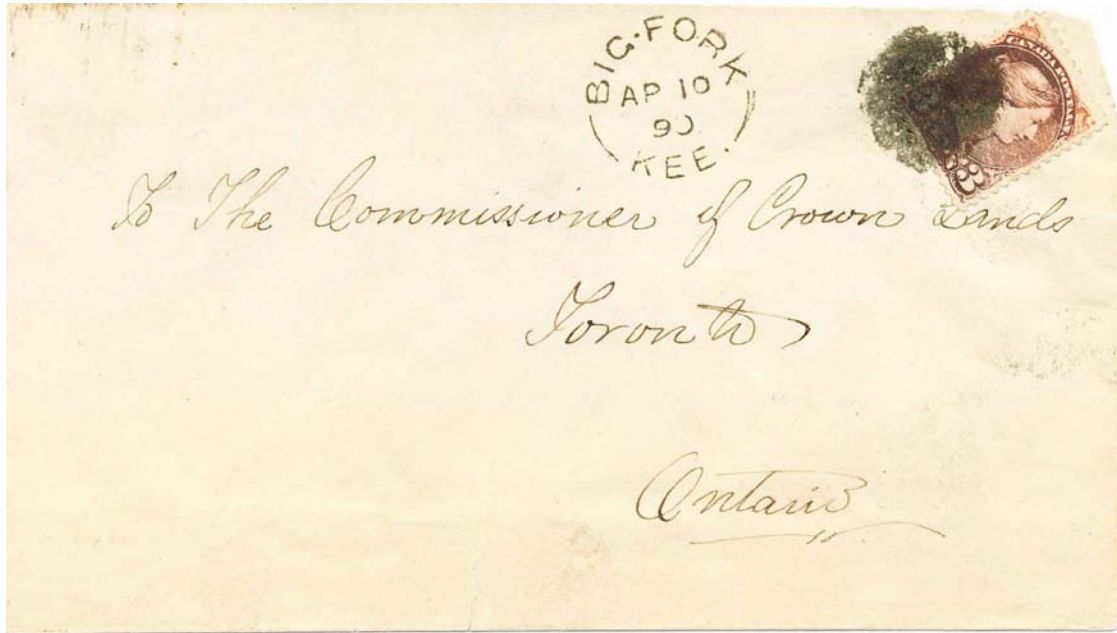 BIG·FORK
AP 10
90
KEE.
CANADA POSTAGE
3
To The Commissioner of Crown Lands
Toronto
Ontario